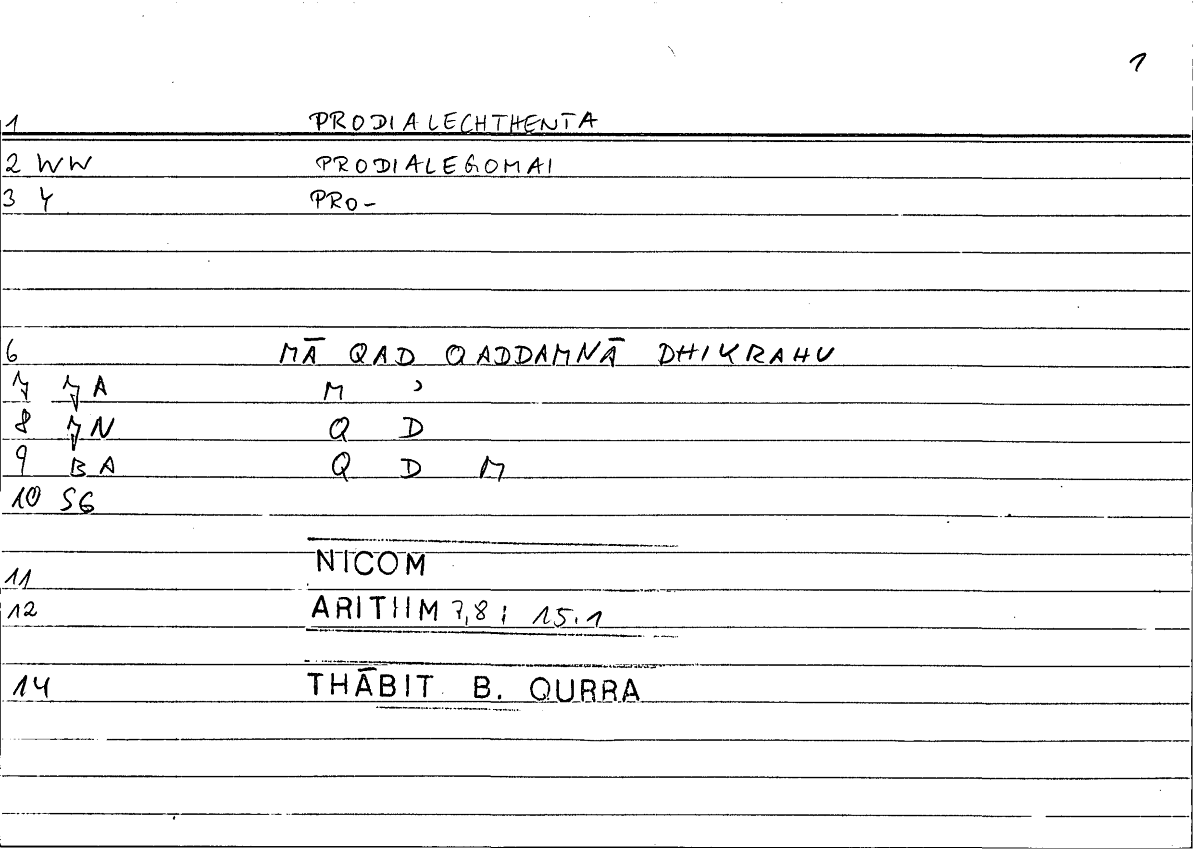 1
1 PRODIALECHTHENTA
2 WW PRODIALEGOMAI
3 Y PRO-
6 MĀ QAD QADDAMNĀ DHIKRAHU
7 JA M ʾ
8 JN Q D
9 BA Q D M
10 SG
11 NICOM
12 ARITHM 7,8; 15.1
14 THĀBIT B. QURRA